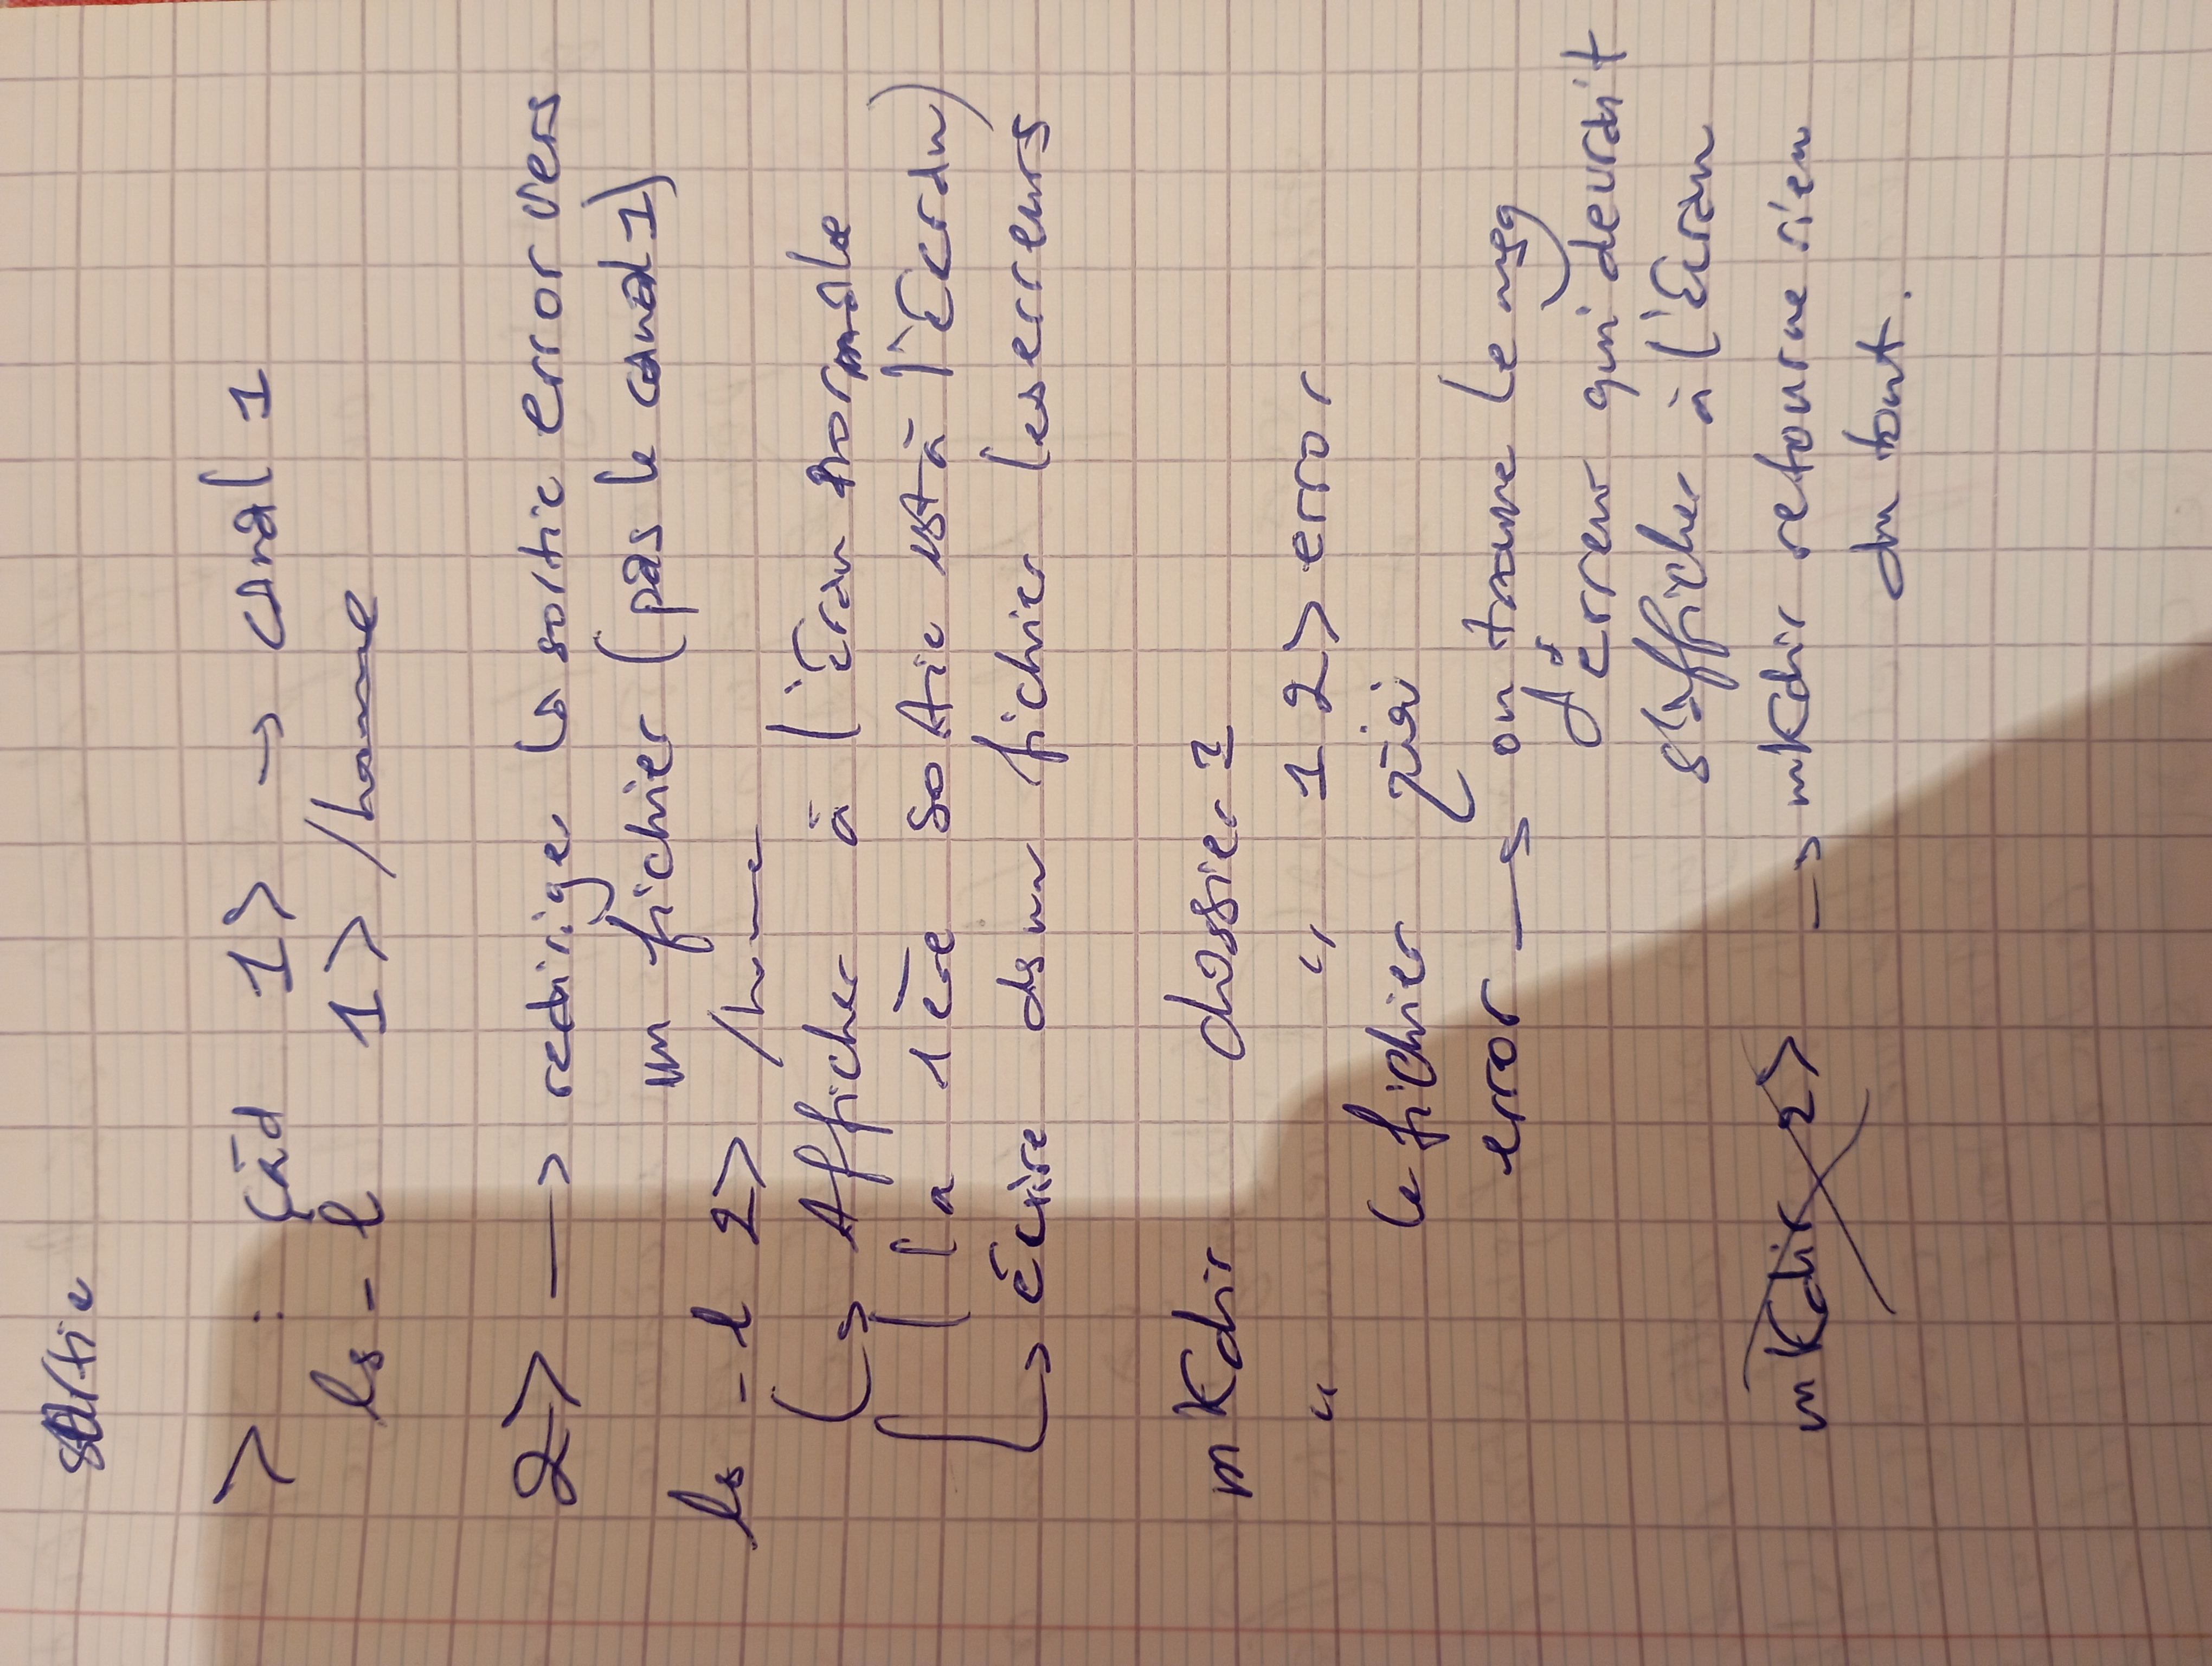 sortie
> : çàd 1> → canal 1
ls -l 1> /home
2> → rediriger la sortie error vers
un fichier (pas le canal 1)
ls -l 2> /home
↳ Afficher à l'écran normale
(la 1ère sortie est à l'écran)
↳ écrire dsun fichier les erreurs
mkdir dossier 1
" " 1 2> error
le fichier
error → on trouve le msg
d'erreur qui devrait
s'afficher à l'écran
mkdir 2> → mkdir retourne rien
du tout.